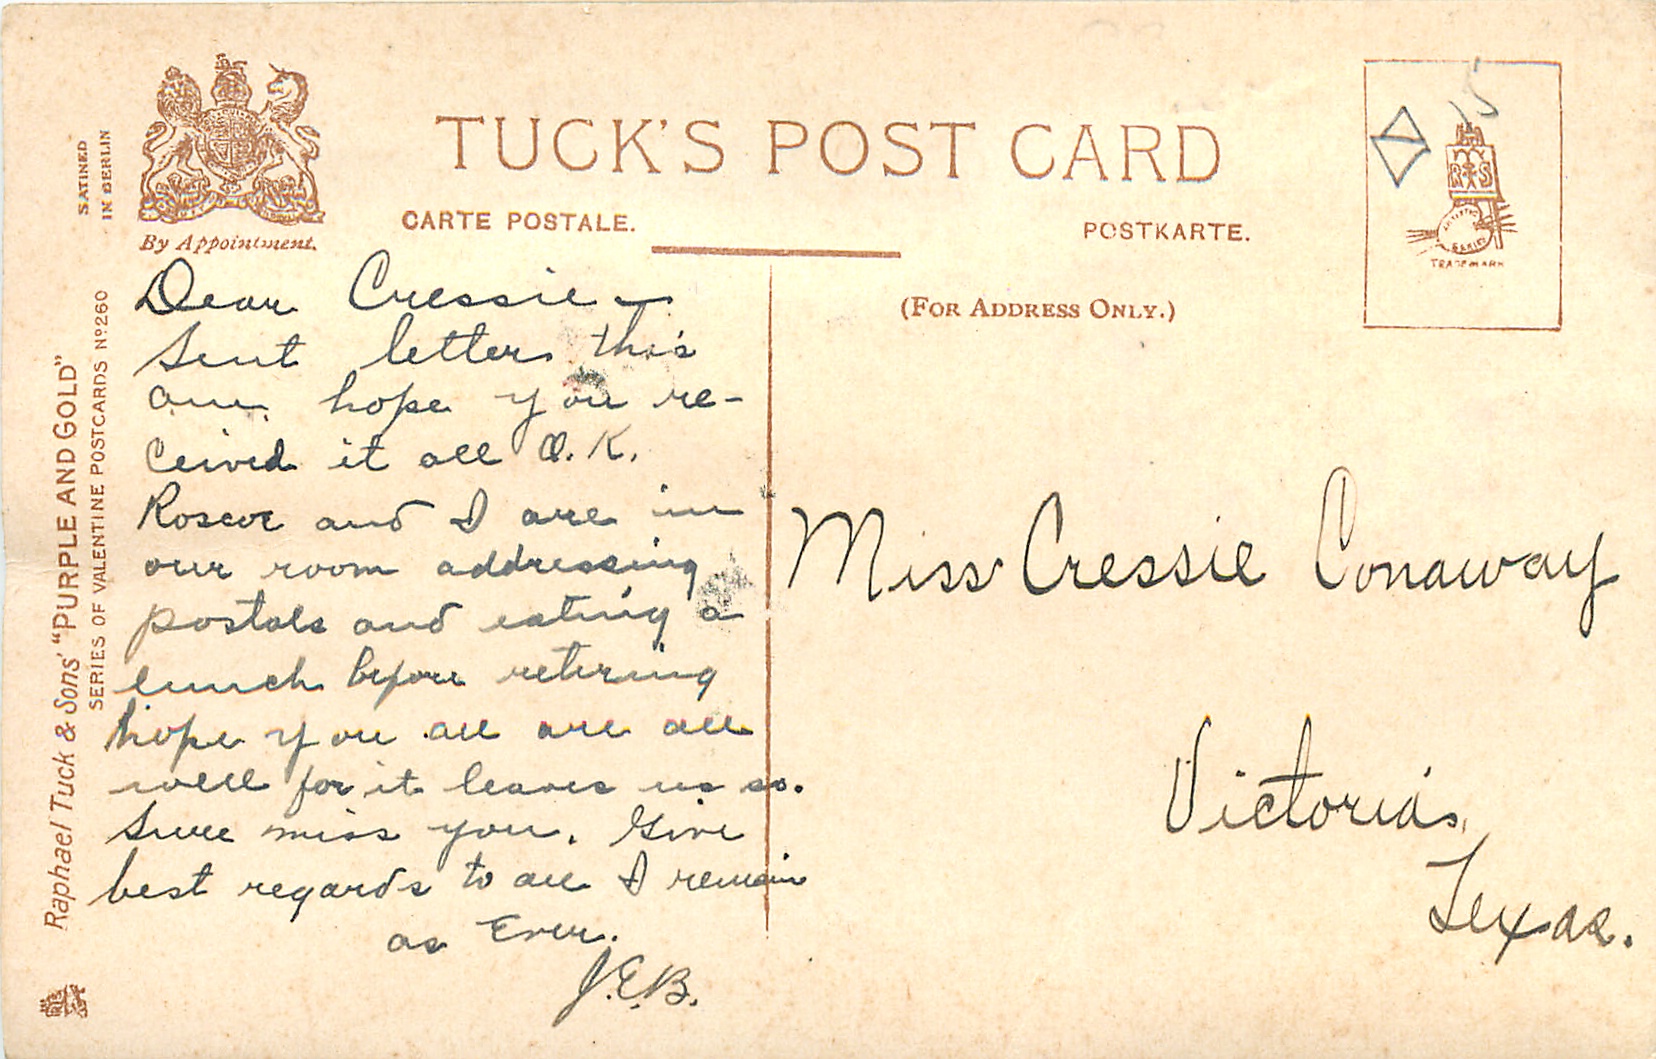 TUCK'S POST CARD
CARTE POSTALE.
POSTKARTE.
(FOR ADDRESS ONLY.)
By Appointment.
SATINED
IN BERLIN
Raphael Tuck & Sons' "PURPLE AND GOLD"
SERIES OF VALENTINE POSTCARDS Nº 260
RTS
ARTISTIC
SERIES
TRADE MARK
15
Dear Cressie –
Sent letter this
am. hope you re-
ceived it all O.K.
Roscoe and I are in
our room addressing
postals and eating a
lunch before retiring
hope you all are all
well for it leaves us so.
Sure miss you. Give
best regards to all I remain
as Ever.
J.E.B.
Miss Cressie Conaway
Victoria,
Texas.